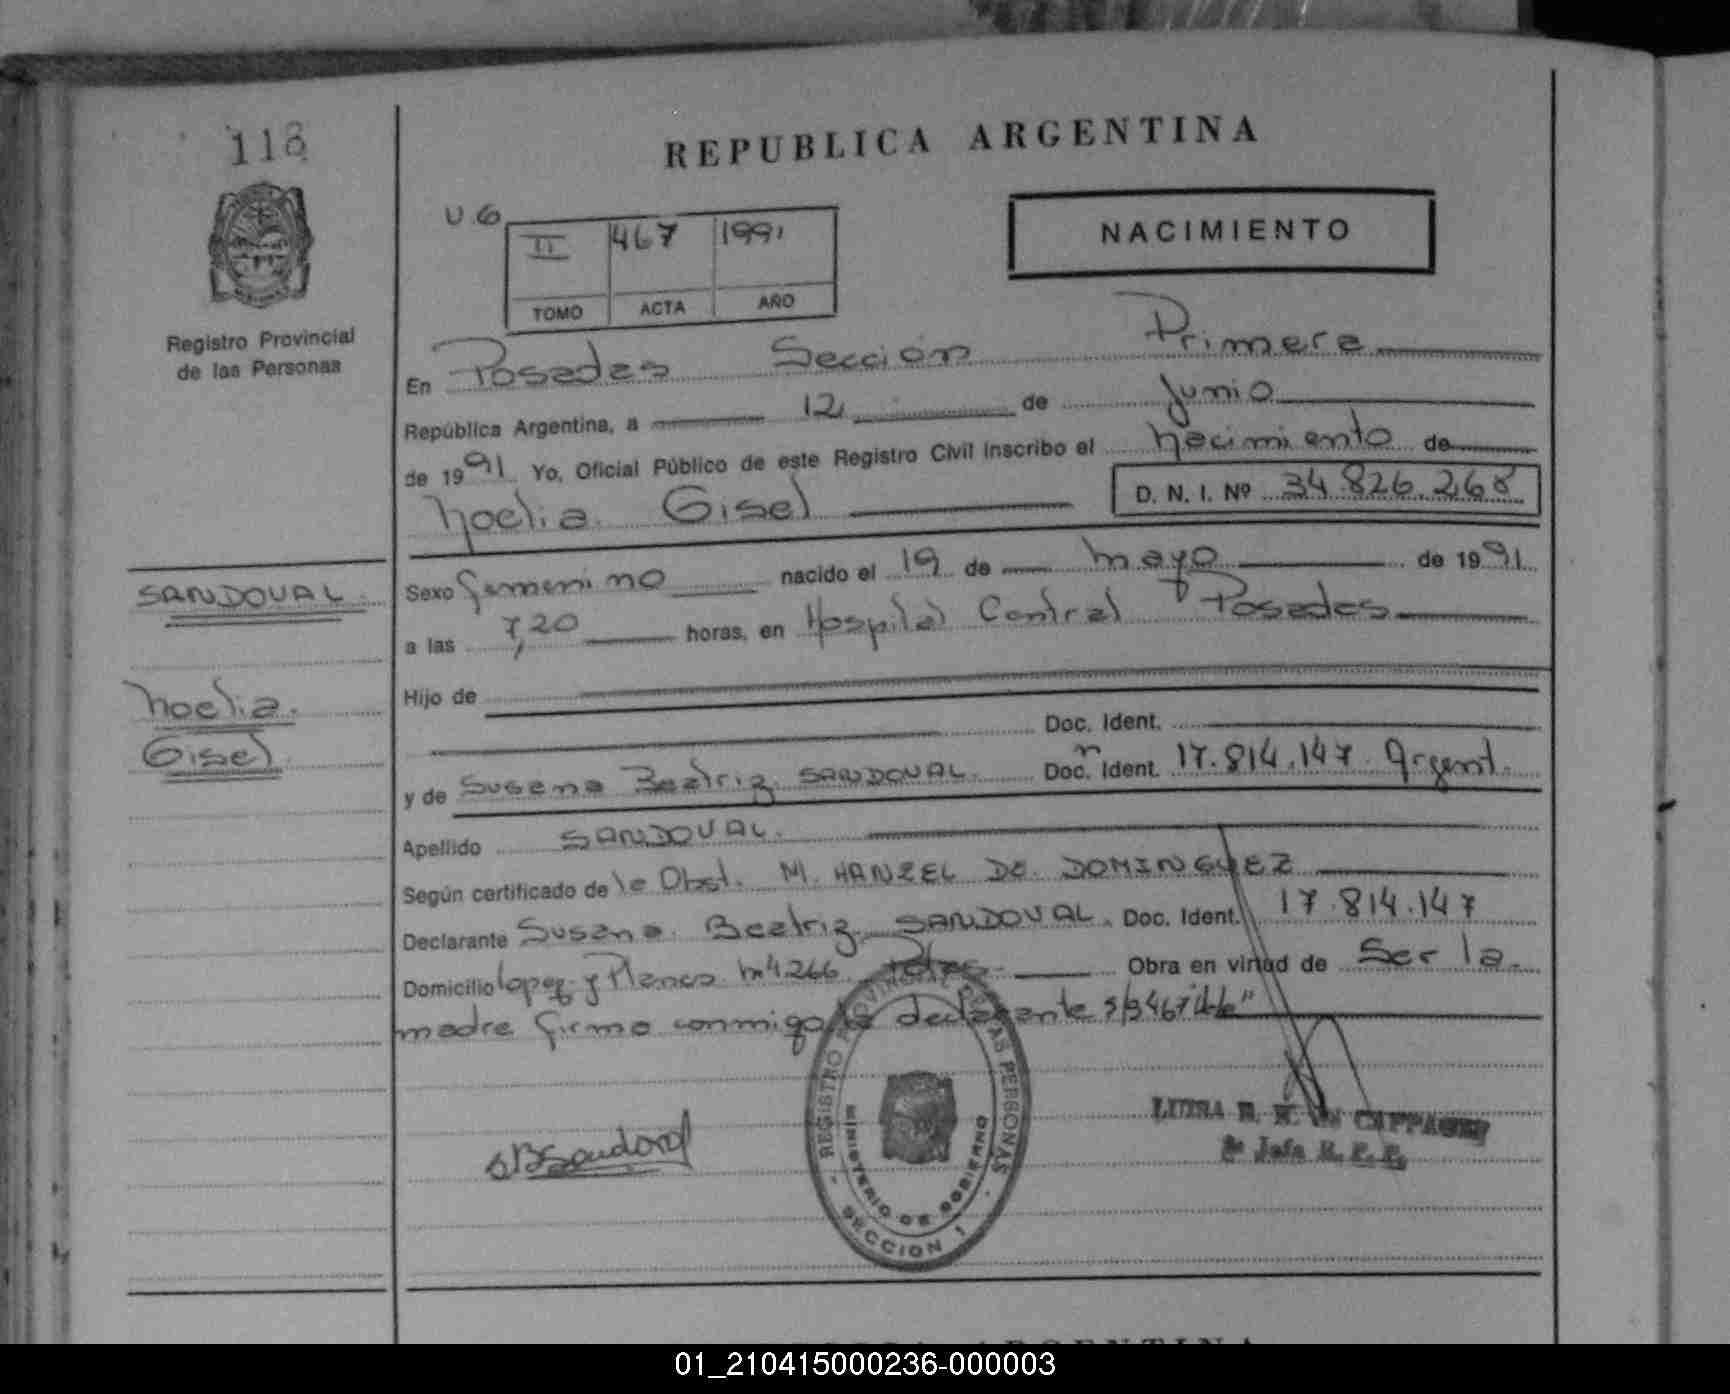 118
REPUBLICA ARGENTINA
U.6
II 467 1991
TOMO ACTA AÑO
NACIMIENTO
Registro Provincial
de las Personas
En Posadas Sección Primera
República Argentina, a 12 de Junio
de 1991 Yo, Oficial Público de este Registro Civil inscribo el nacimiento de
Noelia Gisel D. N. I. Nº 34.826.268
SANDOVAL
Noelia
Gisel
Sexo femenino nacido el 19 de mayo de 1991
a las 7,20 horas, en Hospital Central Posadas
Hijo de
Doc. Ident.
y de Susana Beatriz SANDOVAL Doc. Ident. 17.814.147 Argent.
Apellido SANDOVAL.
Según certificado de la Obst. M. HANZEL DE DOMINGUEZ
Declarante Susana Beatriz SANDOVAL. Doc. Ident. 17.814.147
Domicilio Lopez y Planes Nº 4.266 Pdas. Obra en virtud de Ser la
madre firma conmigo la declarante s/b 467
SBSandoval
REGISTRO PROVINCIAL DE LAS PERSONAS
MINISTERIO DE GOBIERNO
SECCION I
LUISA
Jefa R. P. P.
01_210415000236-000003